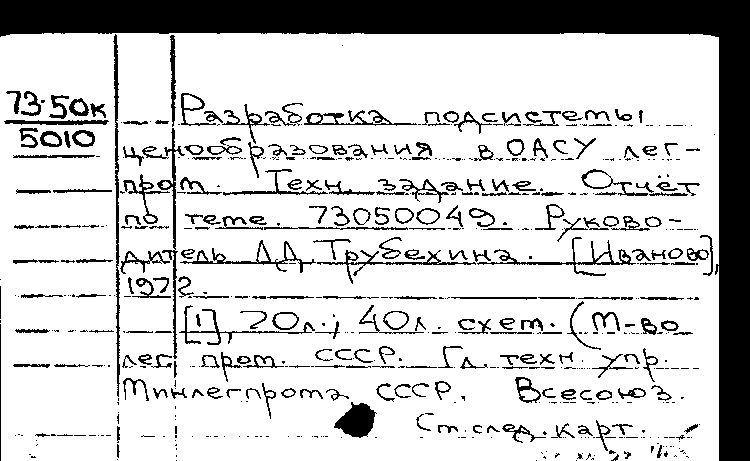 73-50к
5010
Разработка подсистемы
ценообразования в ОАСУ лег-
пром. Техн. задание. Отчёт
по теме. 73050049. Руково-
дитель Л.Д. Трубехина. [Иваново],
1972.
[1], 20л.; 40л. схем. (М-во
лег. пром. СССР. Гл. техн. упр.
Минлегпрома СССР. Всесоюз.
См. след. карт.